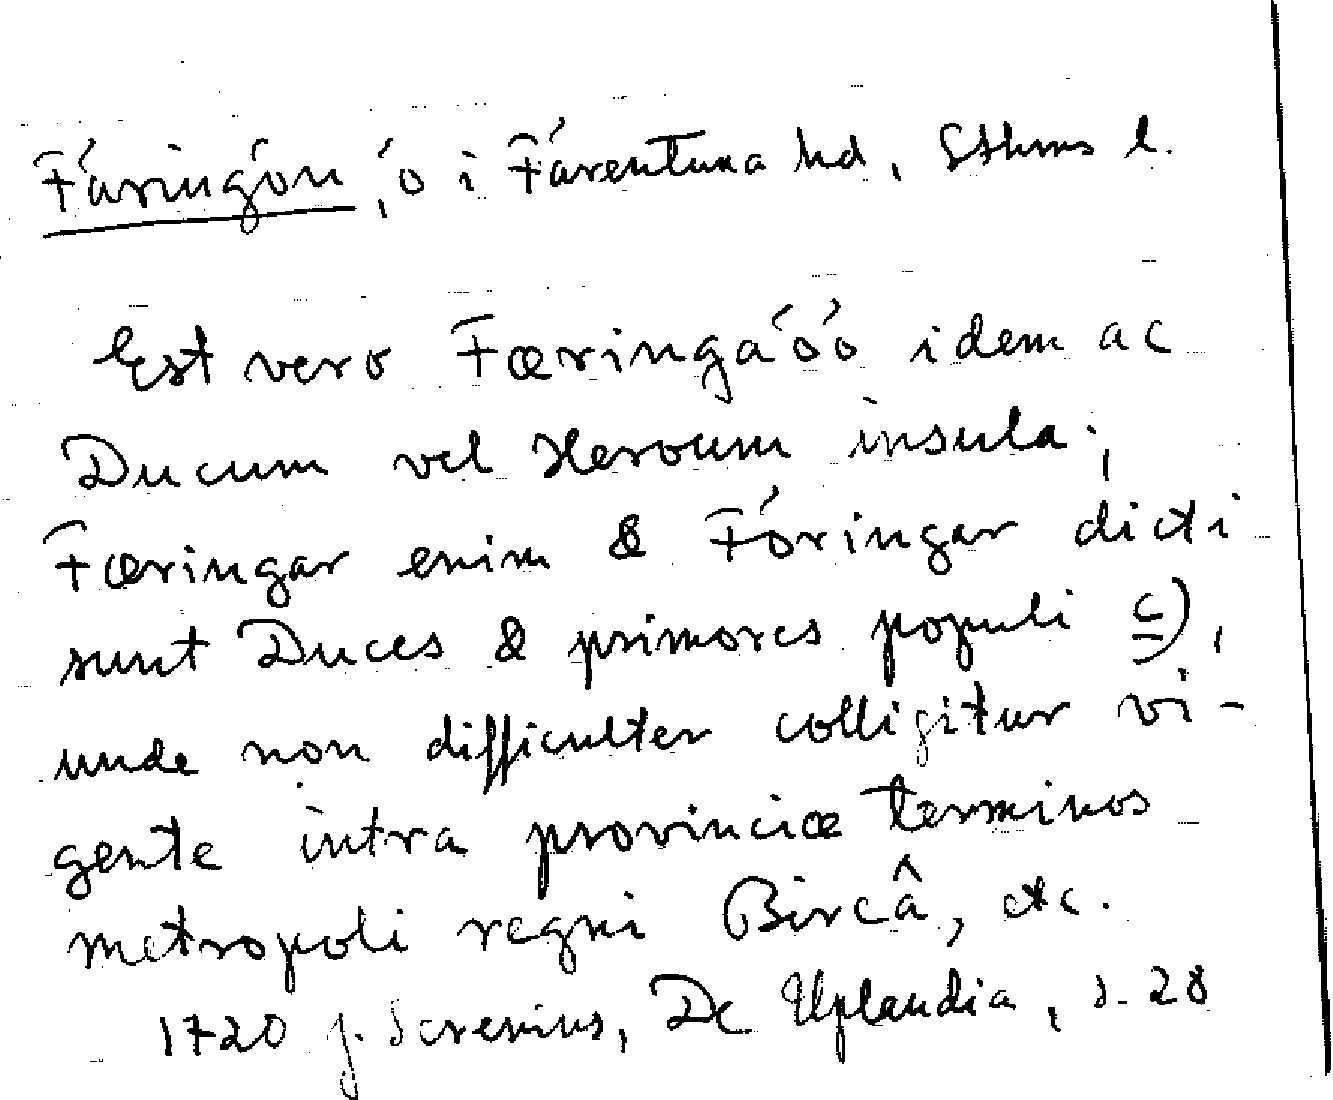 Färingön, ö i Färentuna hd, Sthms l.
Est vero Færingaöö idem ac
Ducum vel Heroum insula;
Færingar enim & Föringar dicti
sunt Duces & primores populi c),
unde non difficulter colligitur vi-
gente intra provinciæ terminos
metropoli regni Bircâ, etc.
1720 J. Serenius, De Uplandia, s. 28